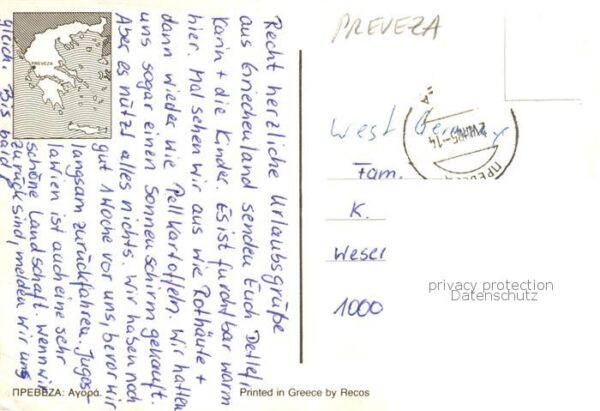 PREVEZA
PREVEZA
Recht herzliche Urlaubsgrüße
aus Griechenland senden Euch Detlef,
Karin + die Kinder. Es ist furchtbar warm
hier. Mal sehen wir aus wie Rothäute +
dann wieder wie Pellkartoffeln. Wir hatten
uns sogar einen Sonnenschirm gekauft.
Aber es nützt alles nichts. Wir haben noch
gut 1 Woche vor uns, bevor wir
langsam zurückfahren. Jugos-
lawien ist auch eine sehr
schöne Landschaft. Wenn wir
zurück sind, melden wir uns
gleich. Bis bald
West Germany
Fam.
K.
Weser
1000
privacy protection
Datenschutz
ΠΡΕΒΕΖΑ: Αγορά.
Printed in Greece by Recos